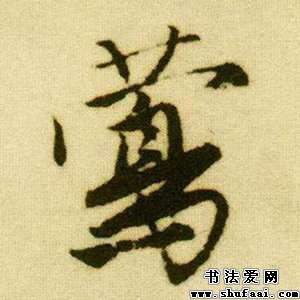 鶯
书法爱网
www.shufaai.com